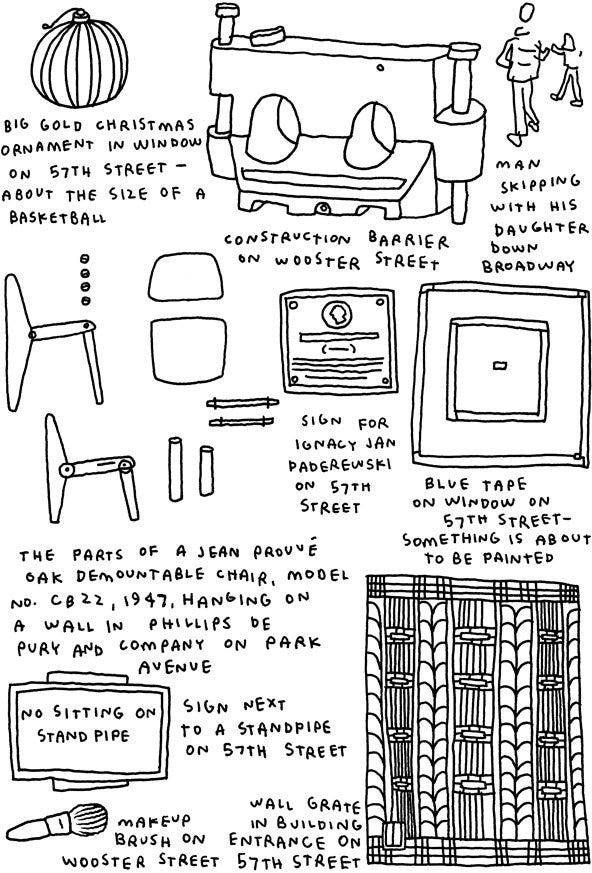 BIG GOLD CHRISTMAS
ORNAMENT IN WINDOW
ON 57TH STREET –
ABOUT THE SIZE OF A
BASKETBALL
CONSTRUCTION BARRIER
ON WOOSTER STREET
MAN
SKIPPING
WITH HIS
DAUGHTER
DOWN
BROADWAY
SIGN FOR
IGNACY JAN
PADEREWSKI
ON 57TH
STREET
BLUE TAPE
ON WINDOW ON
57TH STREET–
SOMETHING IS ABOUT
TO BE PAINTED
THE PARTS OF A JEAN PROUVÉ
OAK DEMOUNTABLE CHAIR, MODEL
NO. CB22, 1947, HANGING ON
A WALL IN PHILLIPS DE
PURY AND COMPANY ON PARK
AVENUE
NO SITTING ON
STAND PIPE
SIGN NEXT
TO A STANDPIPE
ON 57TH STREET
MAKEUP
BRUSH ON
WOOSTER STREET
WALL GRATE
IN BUILDING
ENTRANCE ON
57TH STREET